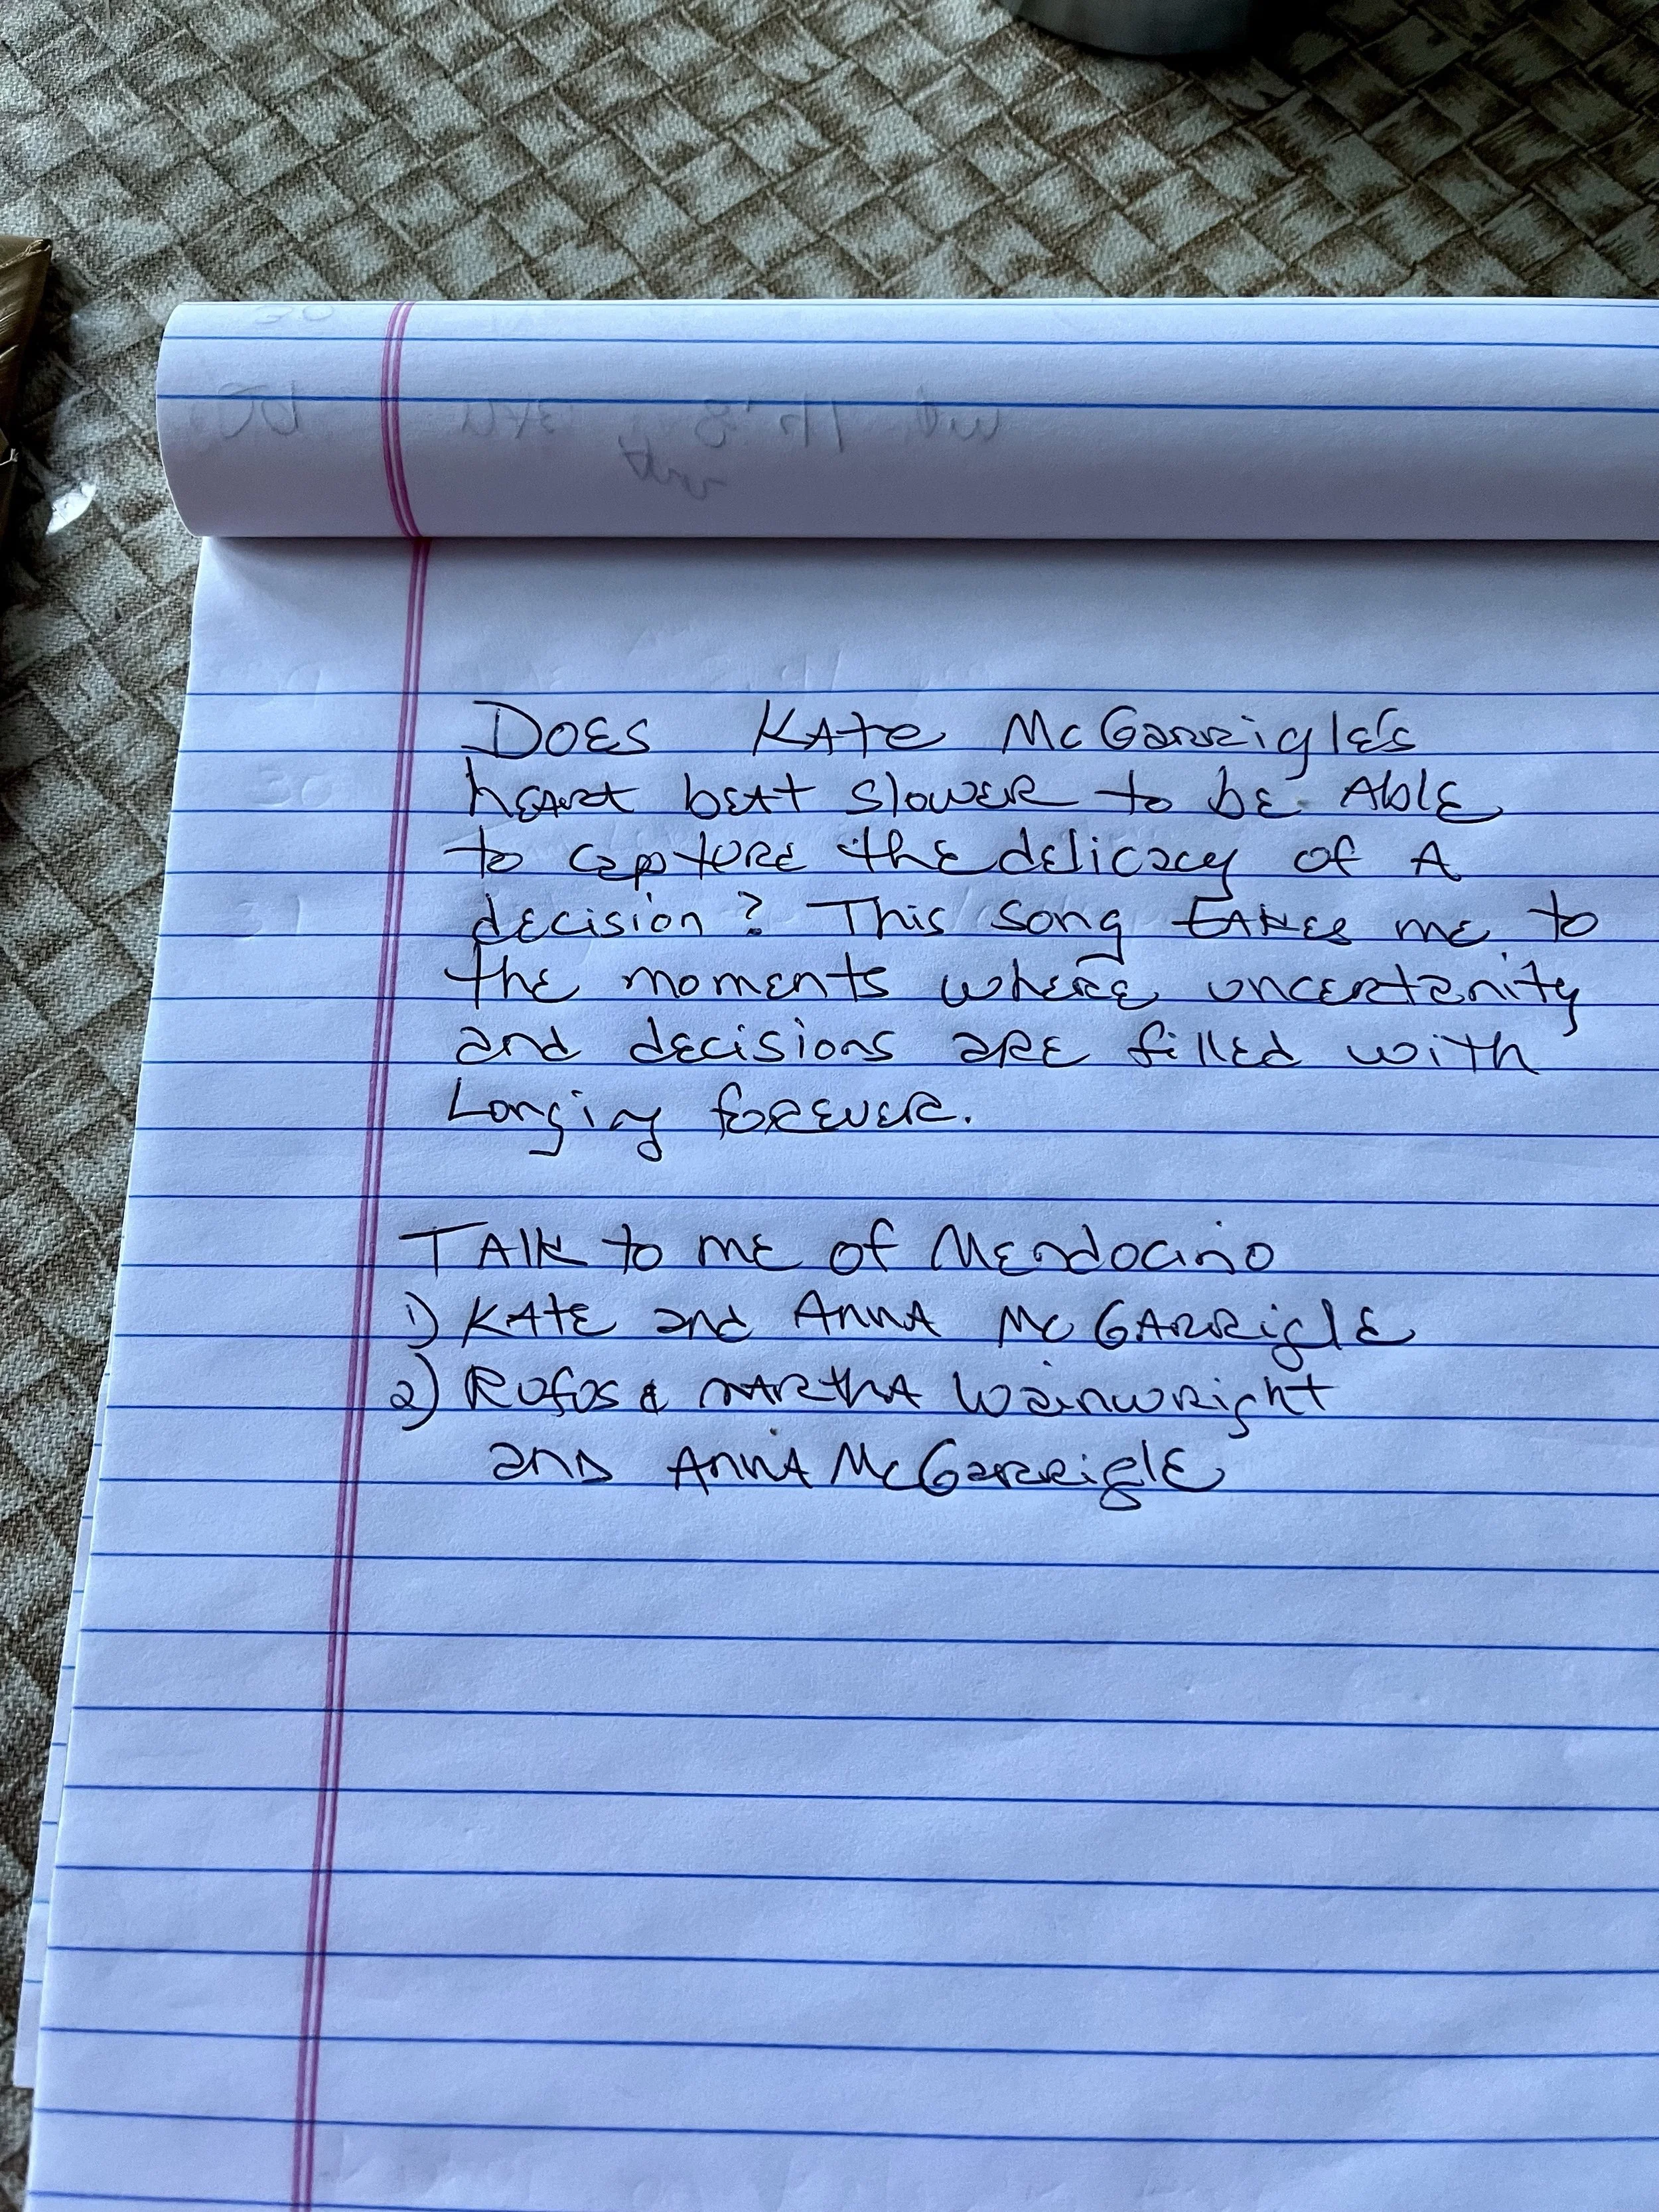 Does Kate McGarrigle's
heart beat slower to be Able
to capture the delicacy of A
decision? This song takes me to
the moments where uncertanity
and decisions are filled with
Longing forever.
Talk to me of Mendocino
1) Kate and Anna McGarrigle
2) Rufus & Martha Wainwright
and Anna McGarrigle